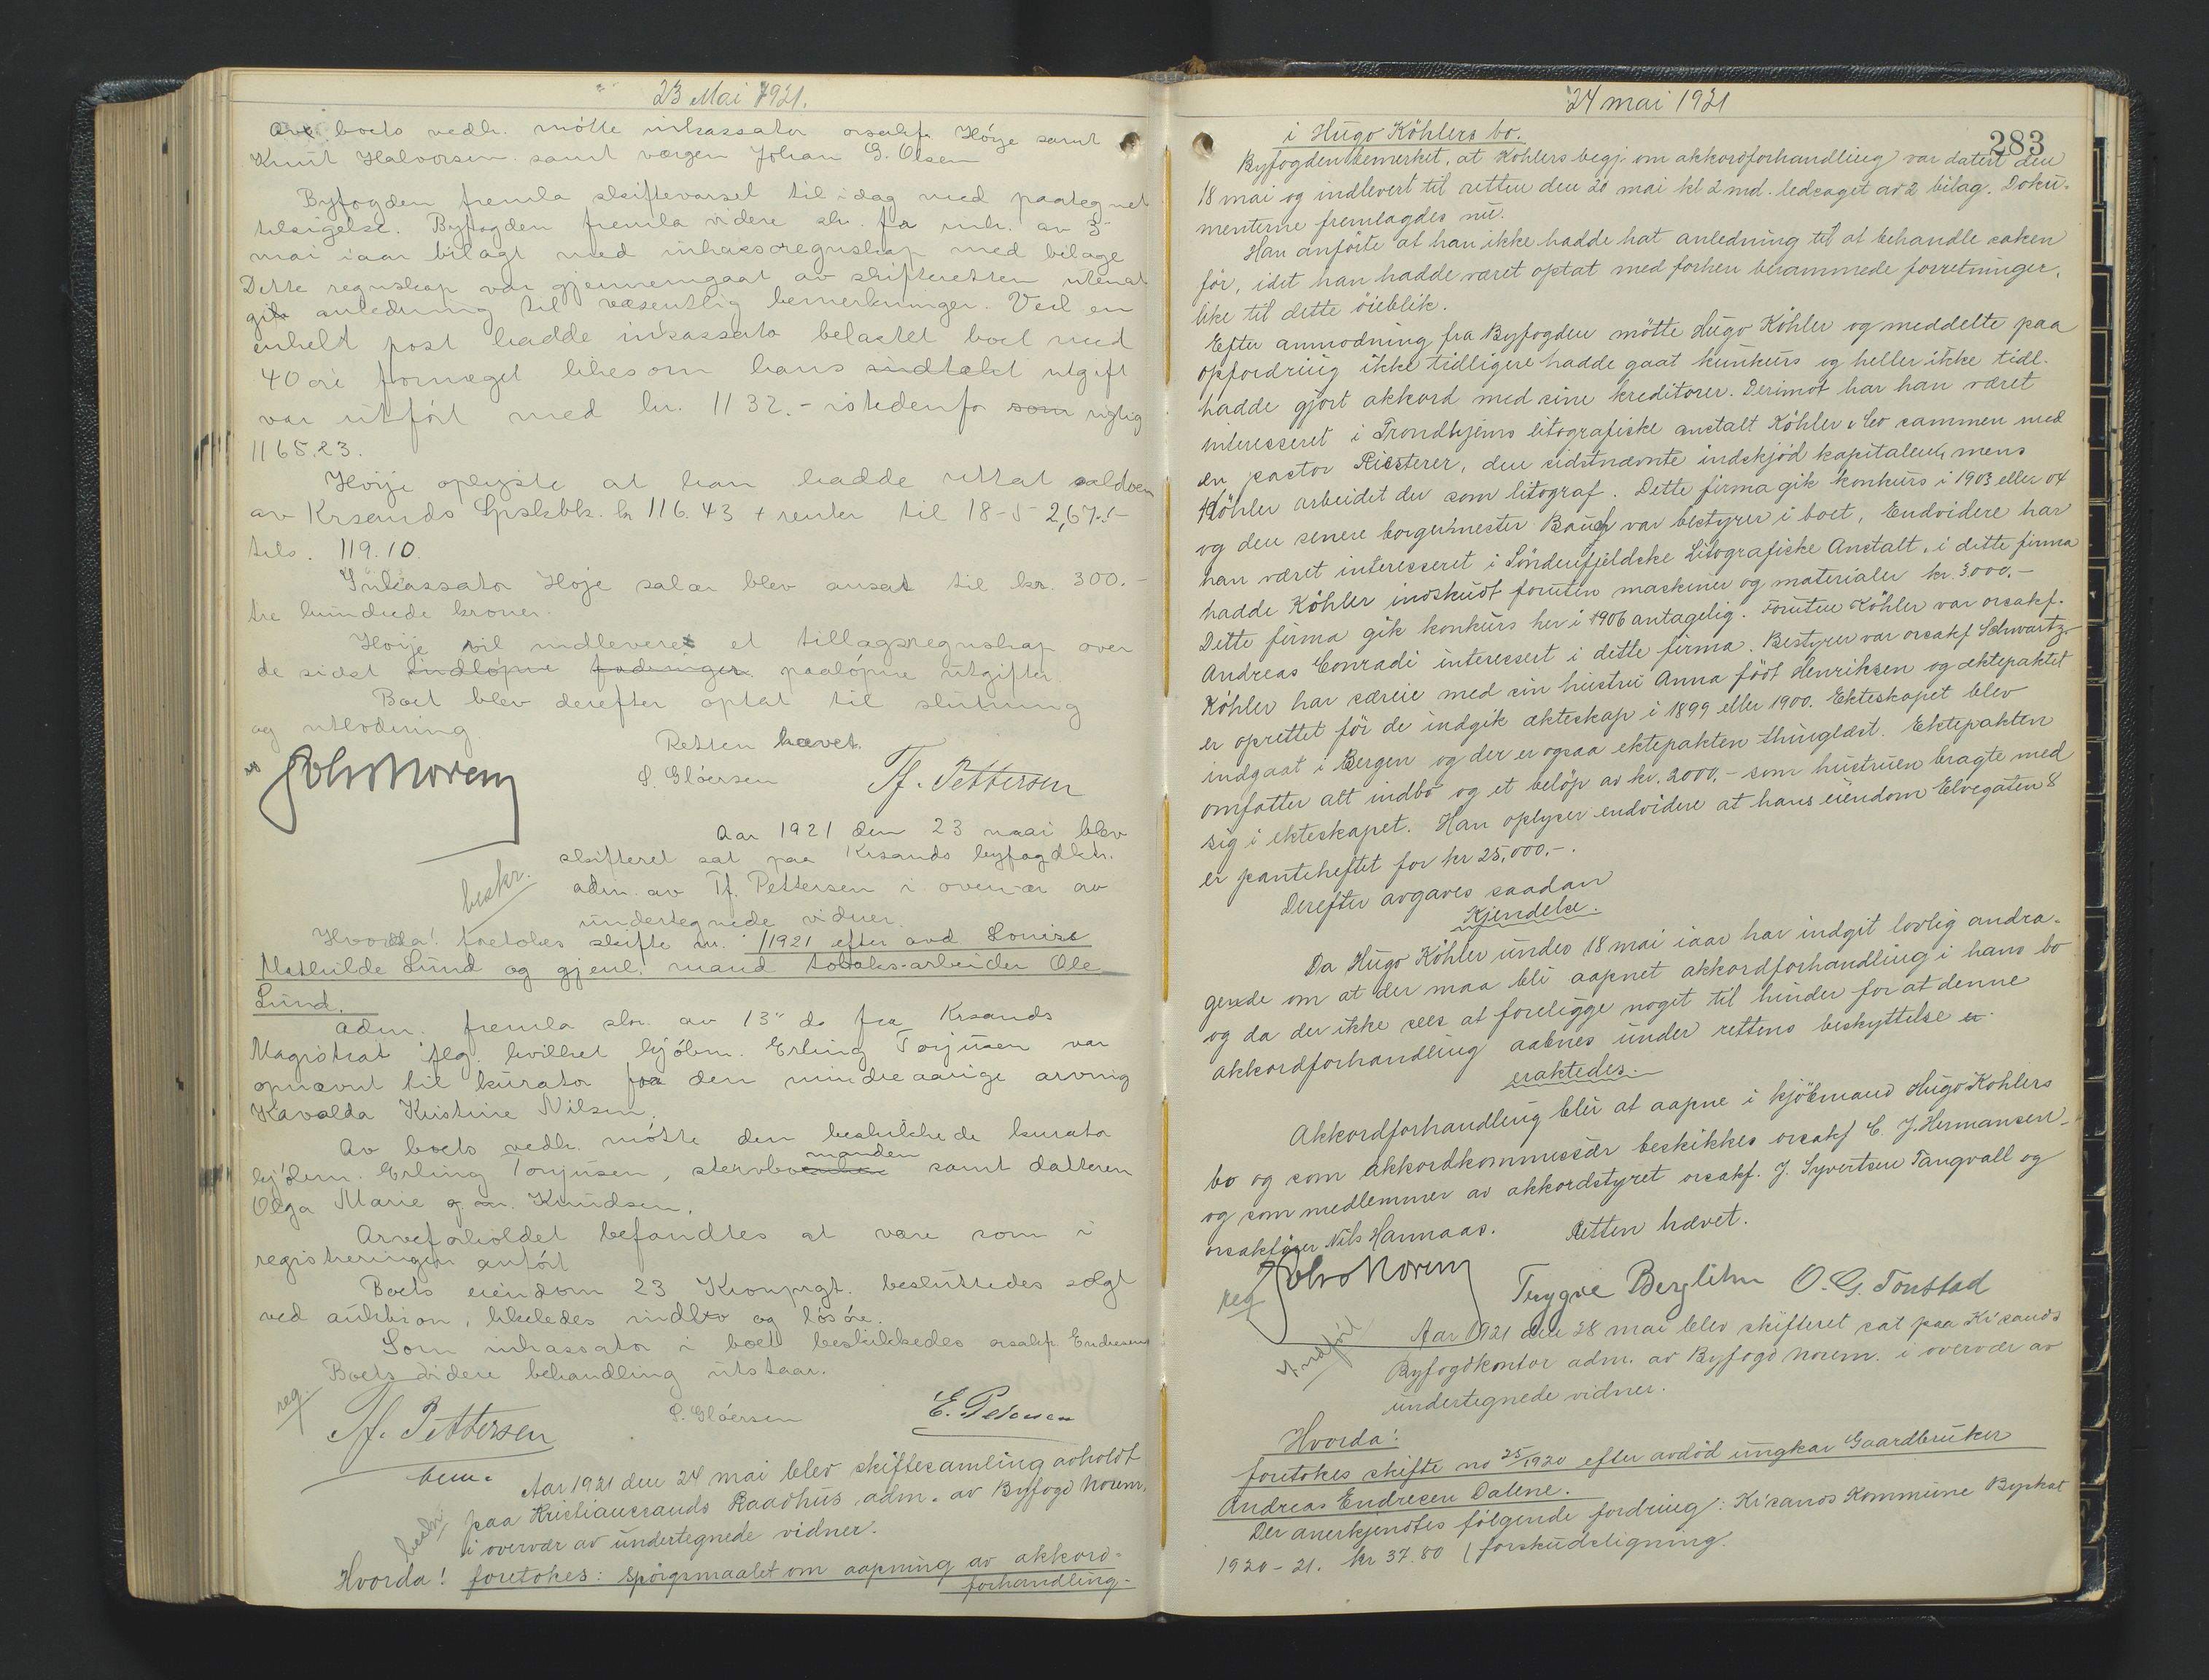 23 Mai 1921.
Av boets vedk. mötte inkassator orsakf. Höije samt
Knut Halvorsen samt vergen Johan G. Olsen
Byfogden fremla skiftevarsel til idag med paategnet
tilsigelse. Byfogden fremla videre skr. fra ink. av 3"
mai iaar bilagt med inkassoregnskap med bilage
Dette regnskap var gjennemgaat av skifteretten utenat
gi anledning til væsentlig bemerkninger. Ved en
enkelt post hadde inkassator belastet boet med
40 öre formeget likesom hans indtækt utgift
var utfört med kr. 1132.- istedenfor som rigtig
1165.23.
Höije oplyste at han hadde uttat saldoen
av Krsands Spskbk. kr 116.43 + renter til 18-5 2,67.-
tils. 119.10.
Inkassator Höje salær blev ansat til kr. 300.-
tre hundrede kroner.
Höije vil indlevere et tillagsregnskap over
de sidst indlöpne fodringer paalöpne utgifter
Boet blev derefter optat til slutning
og utlodning.
Retten hævet.
Solv Norem S. Glöersen Tf. Pettersen
Aar 1921 den 23 mai blev
skifteret sat paa Krsands byfogdktr.
beskr. adm. av Tf. Pettersen i overvær av
undertegnede vidner.
Hvorda! foretokes skifte nr. /1921 efter avd. Louise
Mathilde Lund og gjenl. mand tobaks-arbeider Ole
Lund.
Adm. fremla skr. av 13" ds fra Krsands
Magistrat iflg. hvilket kjöbm. Erling Torjusen var
opnævnt til kurator for den mindreaarige arving
Kavalda Kristine Nilsen.
Av boets vedk. mötte den beskikkede kurator
manden
kjöbm. Erling Torjusen, stervbo samt datteren
Olga Marie g.m. Knudsen.
Arveforholdet befandtes at være som i
registreringen anfört
Boets eiendom 23 Kronprgt. besluttedes solgt
ved auktion, likeledes indbo og lösöre.
Som inkassator i boet beskikkedes orsakf. Endresen
Boets videre behandling utstaar.
reg
Tf. Pettersen S. Glöersen E. Petersen
Aar 1921 den 24 mai blev skiftesamling avholdt
paa Kristianssands Raadhus adm. av Byfogd Norem,
i overvær av undertegnede vidner.
Hvorda! foretokes: Spörgsmaalet om aapning av akkord-
forhandling-
24 mai 1921
283
i Hugo Köhlers bo.
Byfogden bemerket, at Köhlers begj. om akkordforhandling var datert den
18 mai og indlevert til retten den 20 mai kl 2 md. ledsaget av 2 bilag. Doku-
menterne fremlagdes nu.
Han anförte at han ikke hadde hat anledning til at behandle saken
för, idet han hadde været optat med forhen berammede forretninger,
like til dette öieblik.
Efter anmodning fra Byfogden mötte Hugo Köhler og meddelte paa
opfordring ikke tidligere hadde gaat kunkurs og heller ikke tidl.
hadde gjort akkord med sine kreditorer. Derimot har han været
interesseret i Trondhjems litografiske anstalt Köhler & Co sammen med
en pastor Riesterer, den sidstnævnte indskjöd kapitalen, mens
Köhler arbeidet der som litograf. Dette firma gik konkurs i 1903 eller 04
og den senere borgermester Bauch var bestyrer i boet, Endvidere har
han været interesseret i Söndenfjeldske Litografiske Anstalt, i dette firma
hadde Köhler indskudt foruten maskiner og materialer kr. 3000,-
Dette firma gik konkurs her i 1906 antagelig. Foruten Köhler var orsakf.
Andreas Conradi interessert i dette firma. Bestyrer var orsakf Schwartz.
Köhler har særeie med sin hustru Anna födt Henriksen og ektepaktet
er oprettet för de indgik ækteskap i 1899 eller 1900. Ekteskapet blev
indgaat i Bergen og der er ogsaa ektepakten thinglæst. Ektepakten
omfatter alt indbo og et belöp av kr. 2000,- som hustruen bragte med
sig i ekteskapet. Han oplyser endvidere at hans eiendom Elvegaten 8
er panteheftet for kr 25,000,-.
Derefter avgaves saadan
Kjendelse.
Da Hugo Köhler undes 18 mai iaar har indgit lovlig andra-
gende om at der maa bli aapnet akkordforhandling i hans bo
og da der ikke sees at foreligge noget til hinder for at denne
akkordforhandling aabnes under rettens beskyttelse er
eraktedes.-
Akkordforhandling blir at aapne i kjöbmand Hugo Kohlers
bo og som akkordkommissær beskikkes orsakf C. J. Hermansen-
og som medlemmer av akkordstyret orsakf. J. Syvertsen Tangvall og
orsakförer Nils Hannaas. Retten hævet.
reg Solv Norem Trygve Berglihn O. G. Tonstad
Aar 1921 den 28 mai blev skifteret sat paa Kr'sands
Byfogdkontor adm. av Byfogd Norem. i overvær av
undertegnede vidner.
Hvorda!
foretokes skifte no 25/1920 efter avdöd ungkar Gaardbruker
Andreas Endresen Dalene.
Der anerkjendtes fölgende fordring: Kr'sands Kommune Byskat
1920-21. kr 37.80 (forskudsligning.